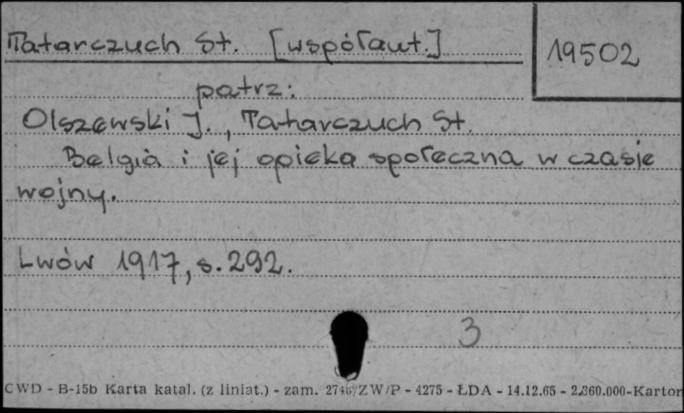 Tatarczuch St. [współaut.]
19502
patrz:
Olszewski J., Tatarczuch St.
Belgia i jej opieka społeczna w czasie
wojny.
Lwów 1917, s. 292.
3
CWD - B-15b Karta katal. (z liniat.) - zam. 2746/ZW/P - 4275 - ŁDA - 14.12.65 - 2.360.000-Karton